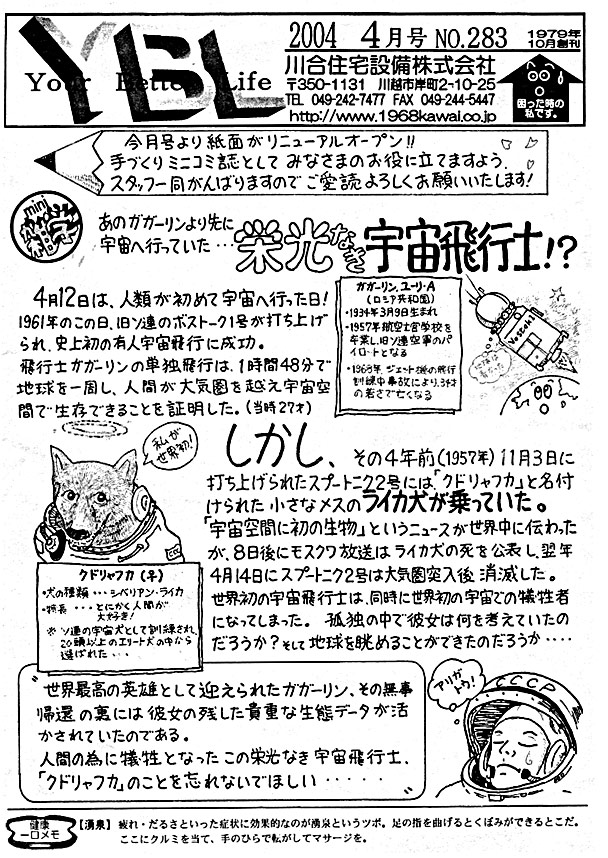 YBL
Your Better Life
2004 4月号 NO.283
1979年
10月創刊
川合住宅設備株式会社
〒350-1131 川越市岸町2-10-25
TEL 049-242-7477 FAX 049-244-5447
http://www.1968kawai.co.jp
困った時の
私です。
今月号より紙面がリニューアルオープン!!
手づくりミニコミ誌として みなさまのお役に立てますよう、
スタッフ一同がんばりますのでご愛読よろしくお願いいたします!
mini
あのガガーリンより先に
宇宙へ行っていた‥
栄光なき宇宙飛行士!?
4月12日は、人類が初めて宇宙へ行った日!
1961年のこの日、旧ソ連のボストーク1号が打ち上げ
られ、史上初の有人宇宙飛行に成功。
飛行士ガガーリンの単独飛行は、1時間48分で
地球を一周し、人間が大気圏を越え宇宙空
間で生存できることを証明した。(当時27才)
ガガーリン,ユーリ・A
(ロシア共和国)
・1934年3月9日生まれ
・1957年航空士官学校を
卒業し、旧ソ連空軍のパ
イロートとなる
・1968年、ジェット機の飛行
訓練中事故により、34才
の若さで亡くなる
Vostok1
私が
世界初!
しかし、その4年前(1957年)11月3日に
打ち上げられたスプートニク2号には「クドリャフカ」と名付
けられた 小さなメスのライカ犬が乗っていた。
「宇宙空間に初の生物」というニュースが世界中に伝わった
が、8日後にモスクワ放送は ライカ犬の死を公表し、翌年
4月14日にスプートニク2号は大気圏突入後 消滅した。
世界初の宇宙飛行士は、同時に世界初の宇宙での犠牲者
になってしまった。 孤独の中で彼女は何を考えていたの
だろうか?そして地球を眺めることができたのだろうか‥‥
クドリャフカ(♀)
・犬の種類‥・シベリアン・ライカ
・特長‥・とにかく人間が
大好き!
※ソ連の宇宙犬として訓練され、
20頭以上のエリート犬の中から
選ばれた‥・
"世界最高の英雄として迎えられたガガーリン、その無事
帰還の裏には彼女の残した貴重な生態データが活
かされていたのである。
人間の為に犠牲となったこの栄光なき宇宙飛行士、
「クドリャフカ」のことを忘れないでほしい‥‥‥
アリガ
トウ!
CCCP
健康
一口メモ
【湧泉】 疲れ・だるさといった症状に効果的なのが湧泉というツボ。足の指を曲げるとくぼみができるとこだ。
ここにクルミを当て、手のひらで転がしてマッサージを。